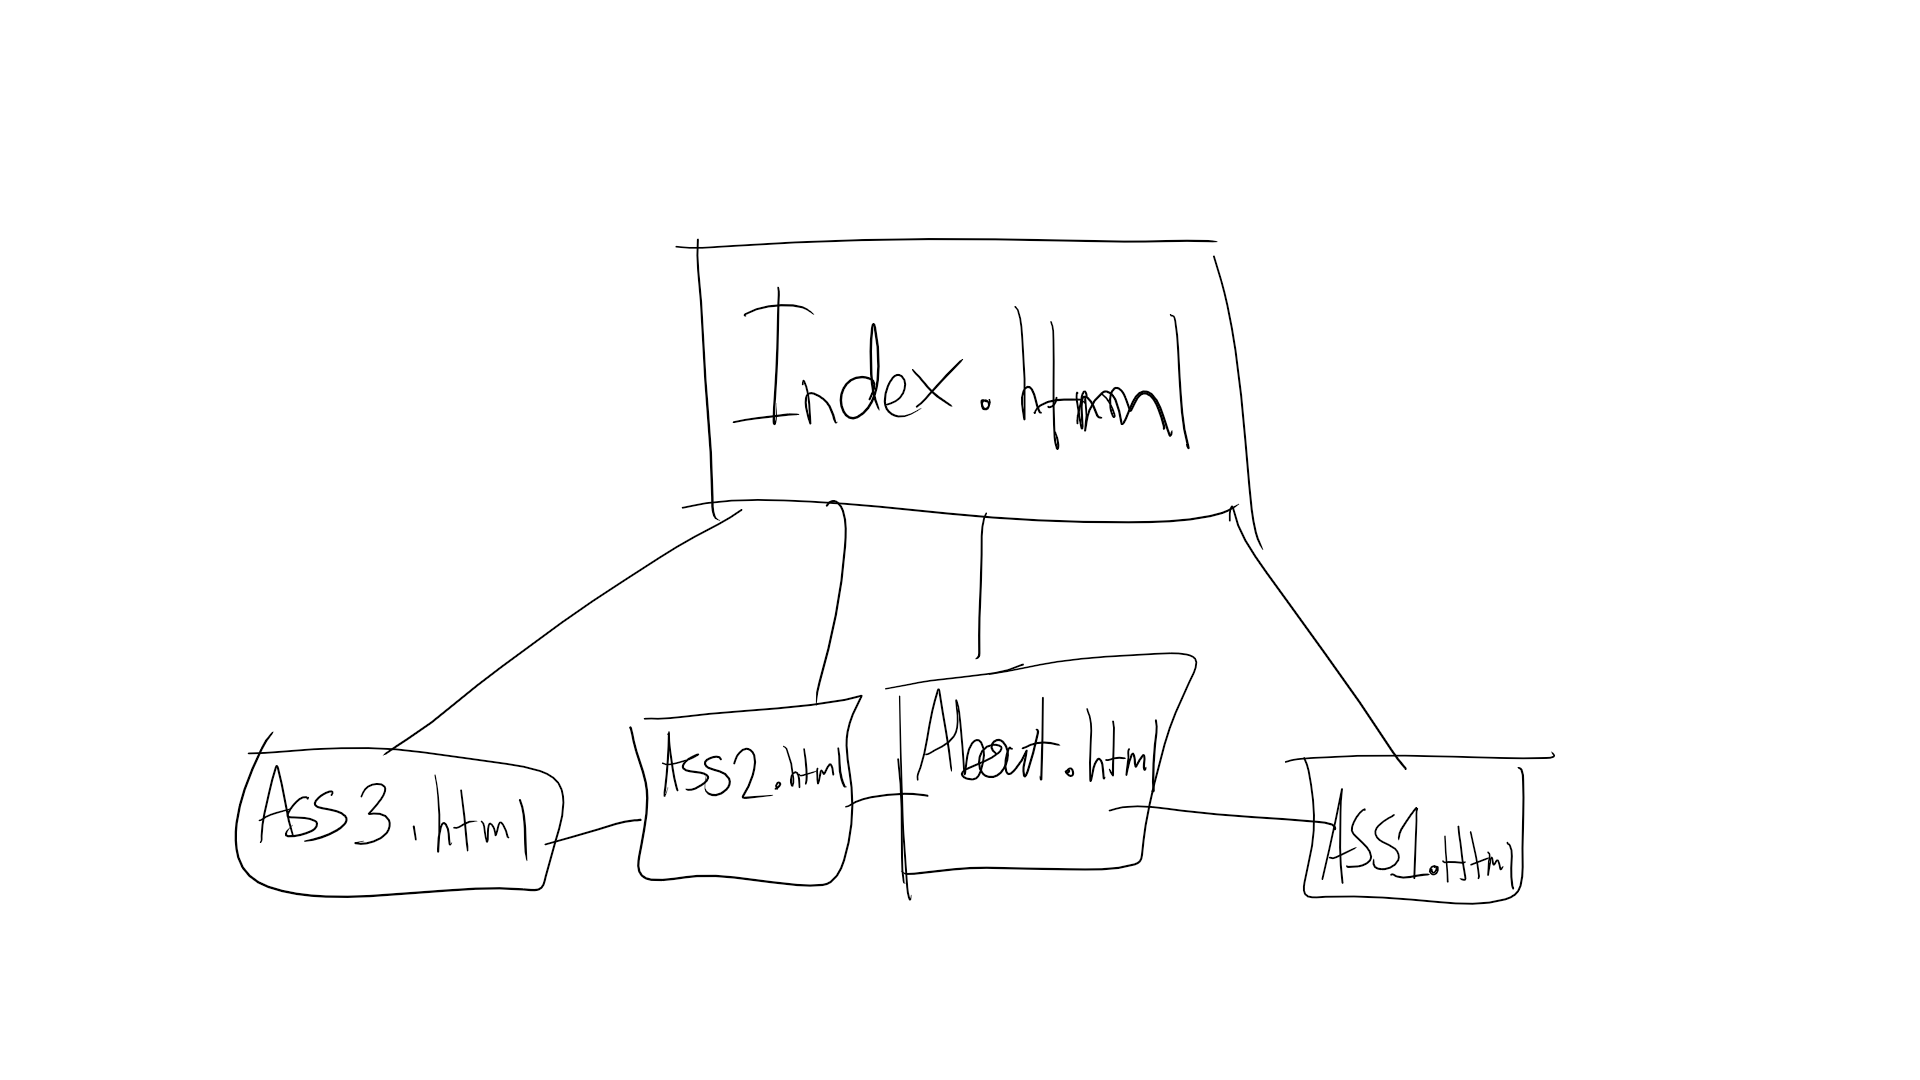 Index.html
Ass3.html
Ass2.html
About.html
Ass1.Html